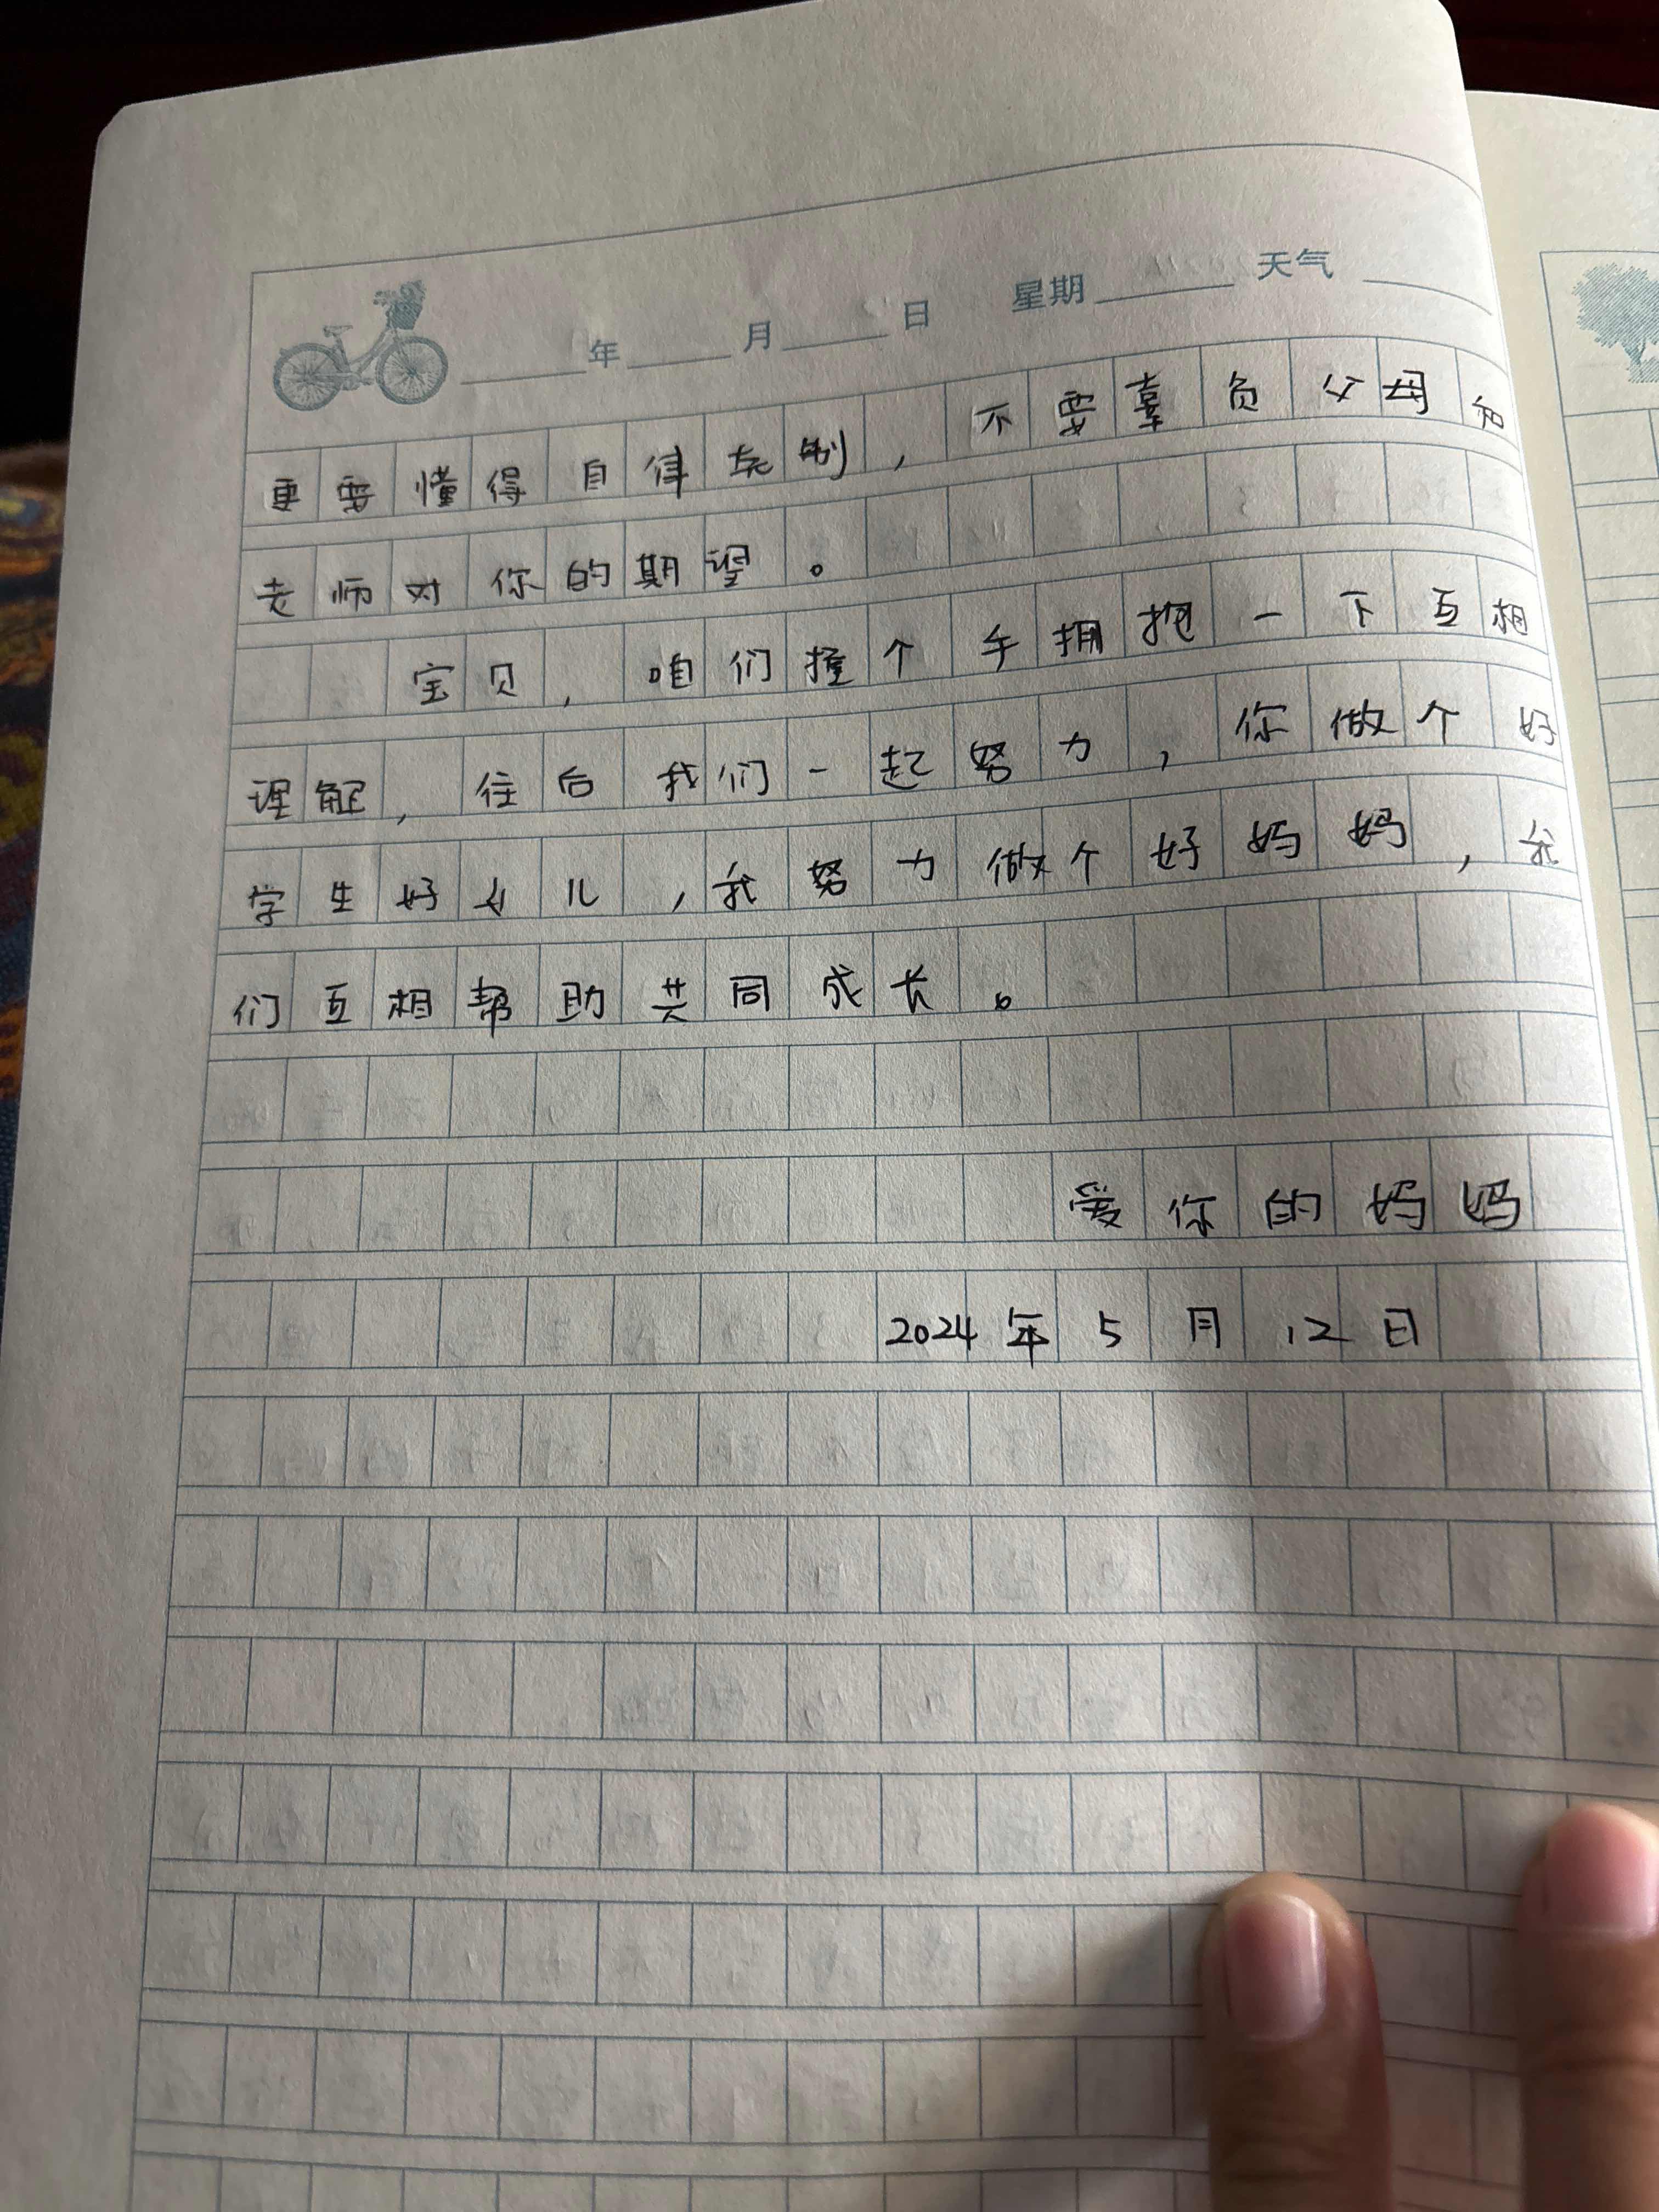 年 月 日 星期 天气
更要懂得自律克制，不要辜负父母和
老师对你的期望。
宝贝，咱们握个手拥抱一下互相
理解，往后我们一起努力，你做个好
学生好女儿，我努力做个好妈妈，我
们互相帮助共同成长。
爱你的妈妈
2024年5月12日